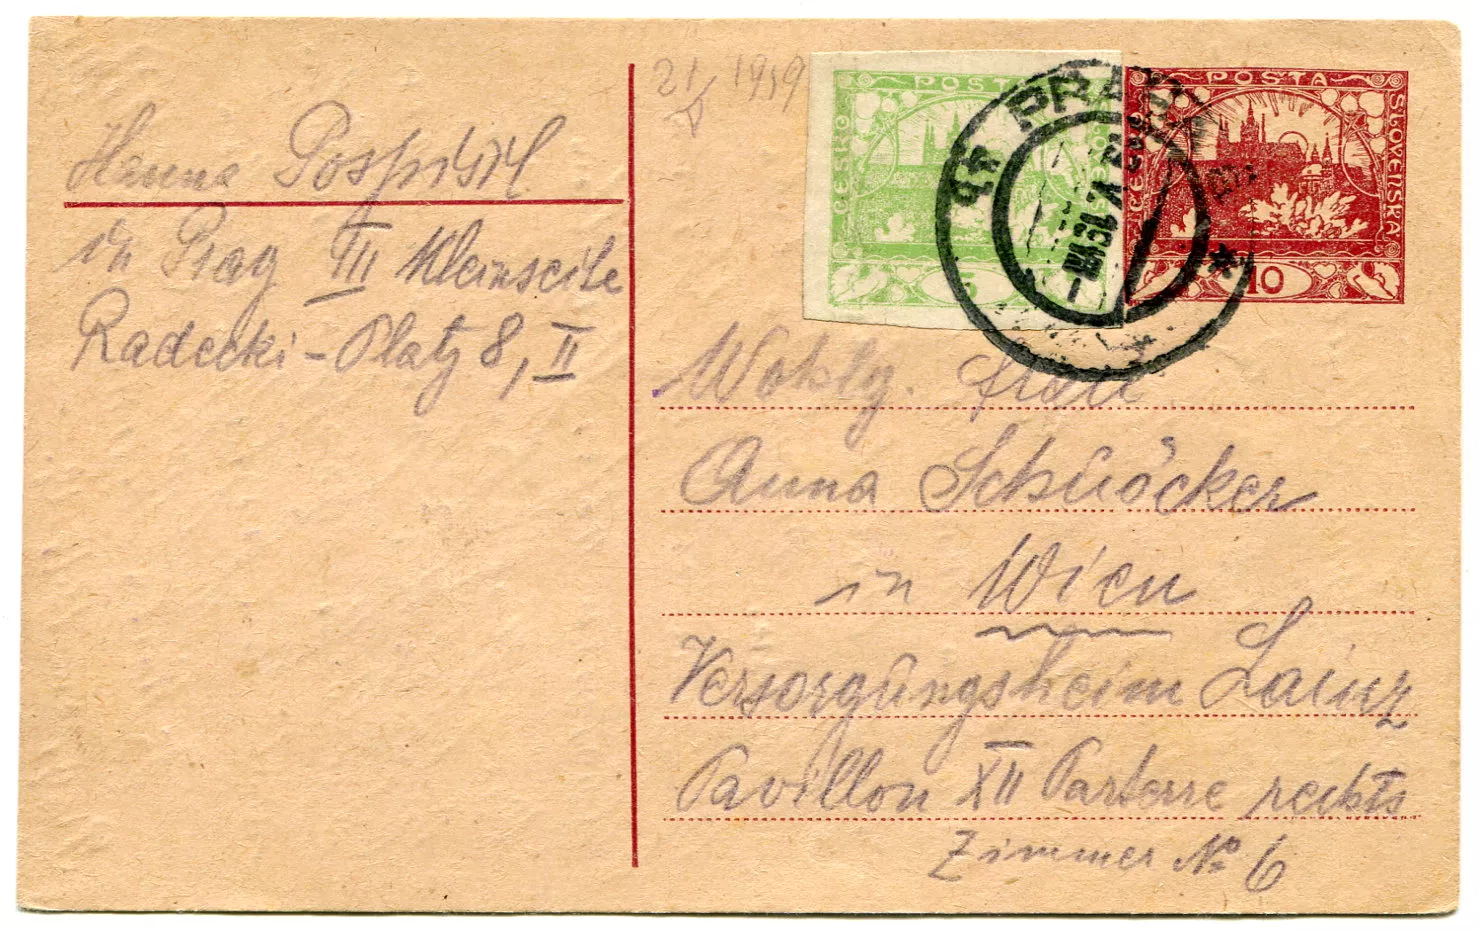 Hanna Pospišil
in Prag III Kleinseite
Radecki-Platz 8, II
1919
POSTA
ČESKO
SLOVENSKÁ
5
POSTA
ČESKO
SLOVENSKÁ
10
PRAHA
V 19
Wohlg. Frau
Anna
in Wien
Versorgungsheim Lainz
Pavillon XII Parterre rechts
Zimmer No 6